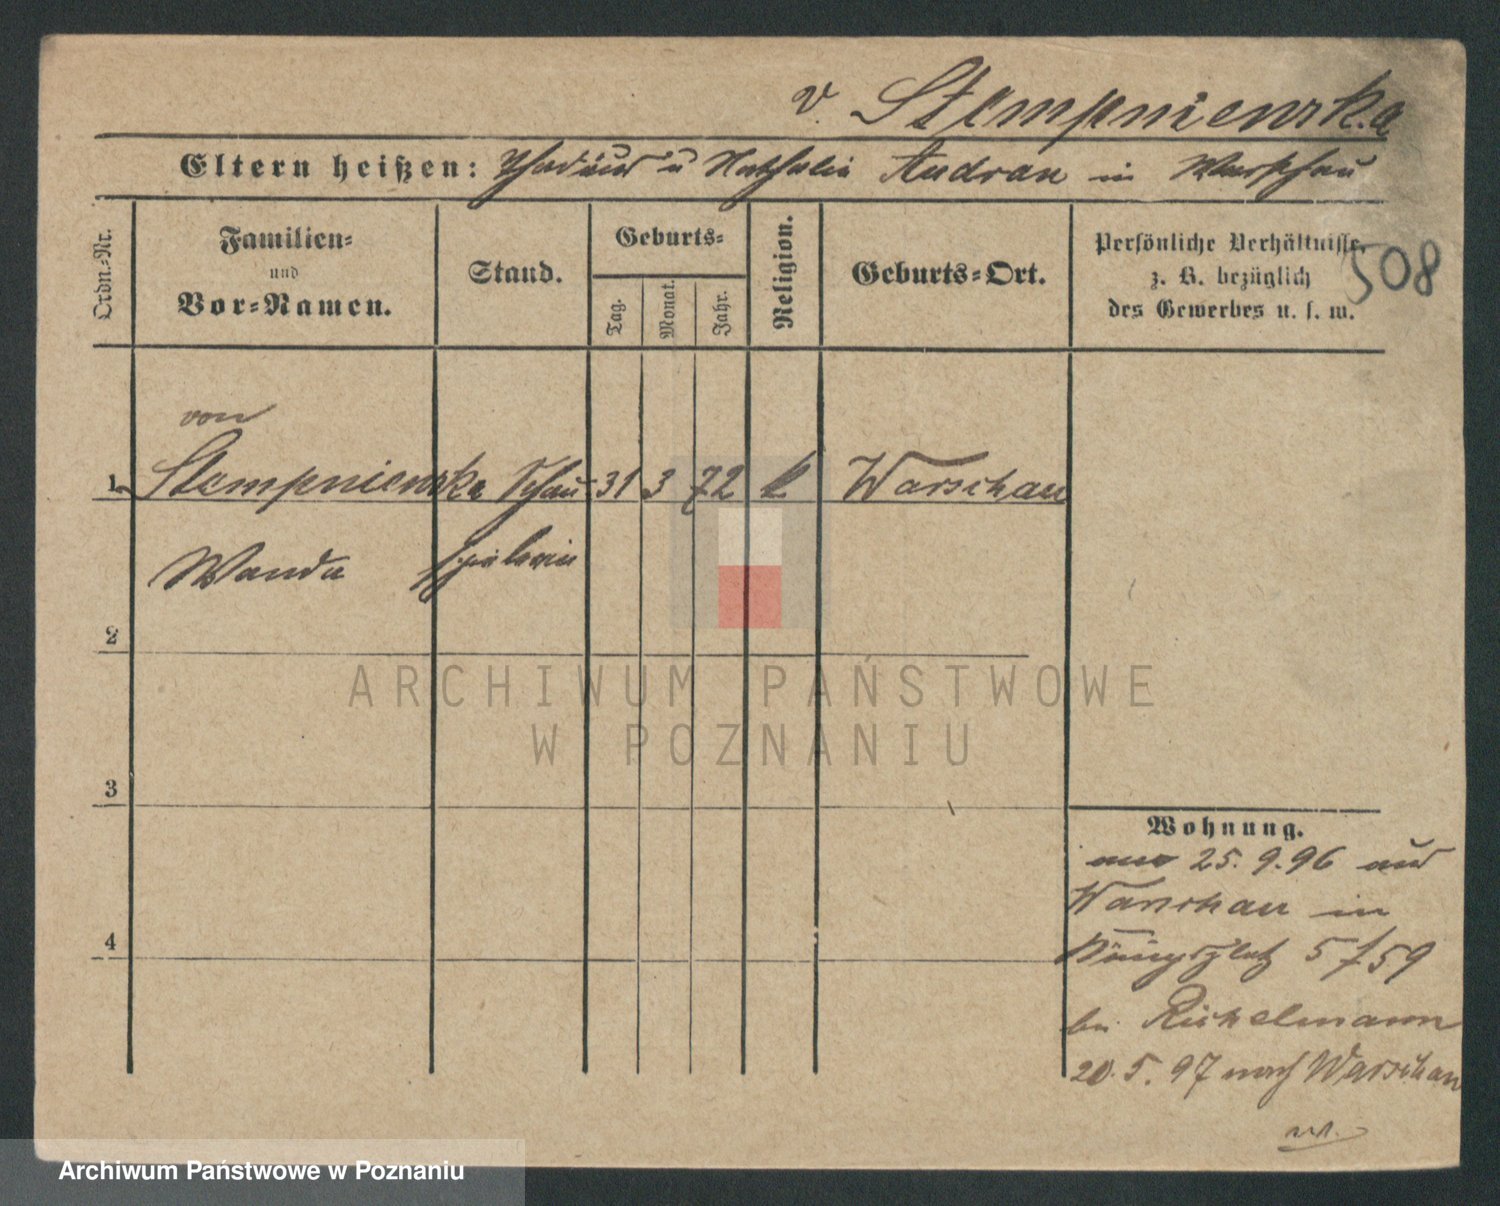 v. Stempniewska
Eltern heißen: Thadäus u Nathalie Andran in Warschau
Ordn.-Nr.
Familien-
und
Vor-Namen.
Stand.
Geburts-
Tag.
Monat.
Jahr.
Religion.
Geburts-Ort.
Persönliche Verhältnisse,
z. B. bezüglich
des Gewerbes u. s. w.
508
von
1. Stempniewska Schau 31 3 72 k Warschau
Wanda spielerin
2
3
4
Wohnung.
25. 9. 96 aus
Warschau in
Königsplatz 5 f 59
bei Richelmann
20. 5. 97 nach Warschau
ARCHIWUM PAŃSTWOWE
W POZNANIU
Archiwum Państwowe w Poznaniu